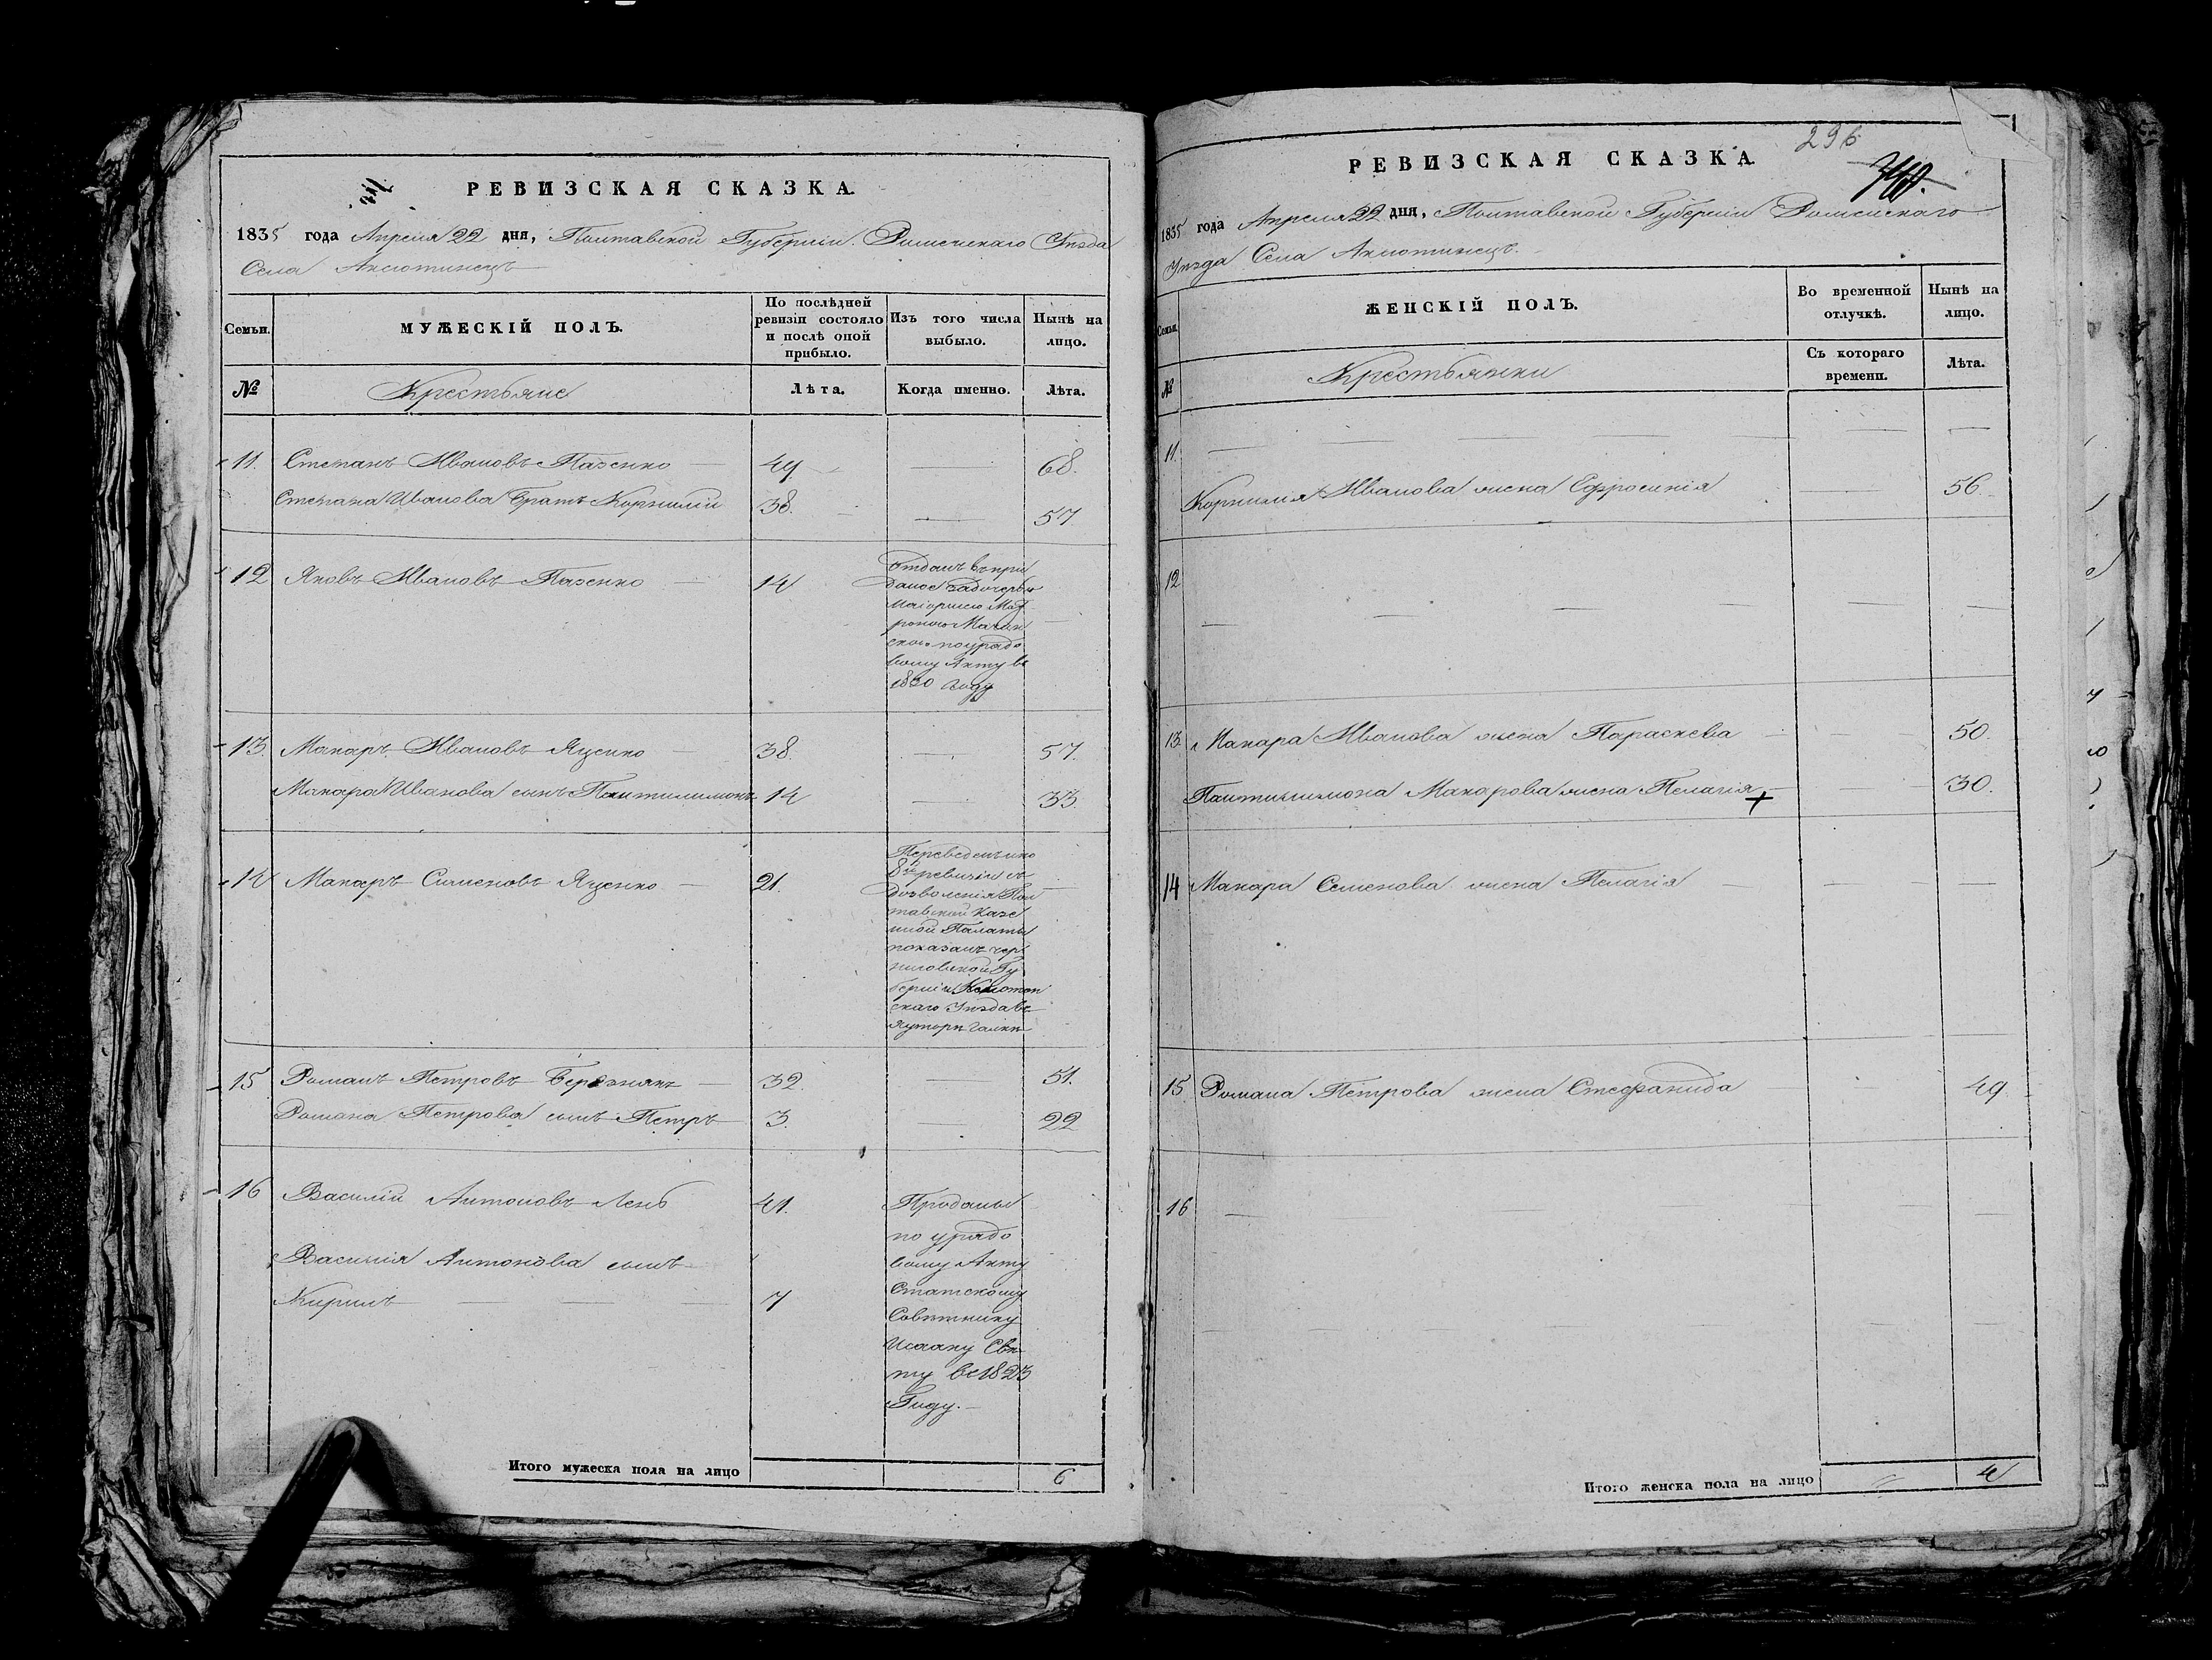 РЕВИЗСКАЯ СКАЗКА.
1835 года Апреля 22 дня, Полтавской Губернии Роменского Уезда
Села Аксютинецъ
Семьи.
МУЖЕСКІЙ ПОЛЪ.
По послѣдней ревизіи состояло и послѣ оной прибыло.
Изъ того числа выбыло.
Нынѣ на лицо.
№
Крестьяне
Лѣта.
Когда именно.
Лѣта.
11. Степанъ Ивановъ Пазенко 49 68.
Степана Иванова братъ Корнилій 38. 57
12 Яковъ Ивановъ Пазенко 14
Отданъ въ при
даное за дочерью
Маіоршею Мат
роною
по урядо
вому Акту въ
1820 году
13. Макаръ Ивановъ Яценко 38. 57.
Макара Иванова сынъ Пантилимонъ 14 33.
14 Макаръ Сименовъ Яценко 21.
Переведенъ и по
8й ревизіи съ
дозволенія Пол
тавской Казе
нной Палаты
показанъ чер
ниговской Гу
берніи Конотоп
скаго Уезда въ
хуторе
15 Романъ Петровъ Березнякъ 32. 51.
Романа Петрова сынъ Петръ 3. 22
16 Василій Антоновъ Лень 41.
Василія Антонова сынъ
Кирилъ 7
Проданы
по урядо
вому Акту
Статскому
Советнику
Исааку Све
ту въ 1823
Году.
Итого мужеска пола на лицо 6
296
РЕВИЗСКАЯ СКАЗКА
1835 года Апреля 22 дня, Полтавской Губернии Роменскаго
Уезда Села Аксютинецъ.
Семьи.
ЖЕНСКІЙ ПОЛЪ.
Во временной отлучкѣ.
Нынѣ на лицо.
№
Крестьянки
Съ котораго времени.
Лѣта.
11.
Корнилія Иванова жена Ефросинія 56
12
13. Макара Иванова жена Параскева 50.
Пантилимона Макарова жена Пелагія 30.
14 Макара Семенова жена Пелагія
15 Романа Петрова жена Стефанида 49
16
Итого женска пола на лицо 4